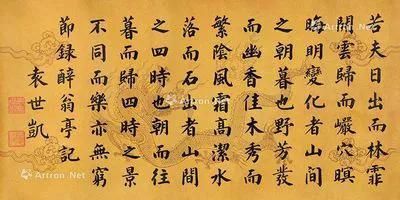 若夫日出而林霏
開雲歸而巖穴暝
晦明變化者山間
之朝暮也野芳發
而幽香佳木秀而
繁陰風霜高潔水
落而石出者山間
之四時也朝而往
暮而歸四時之景
不同而樂亦無窮
節錄醉翁亭記
袁世凱
Artron.Net
Artron.Net
Artron.Net
Artron.Net